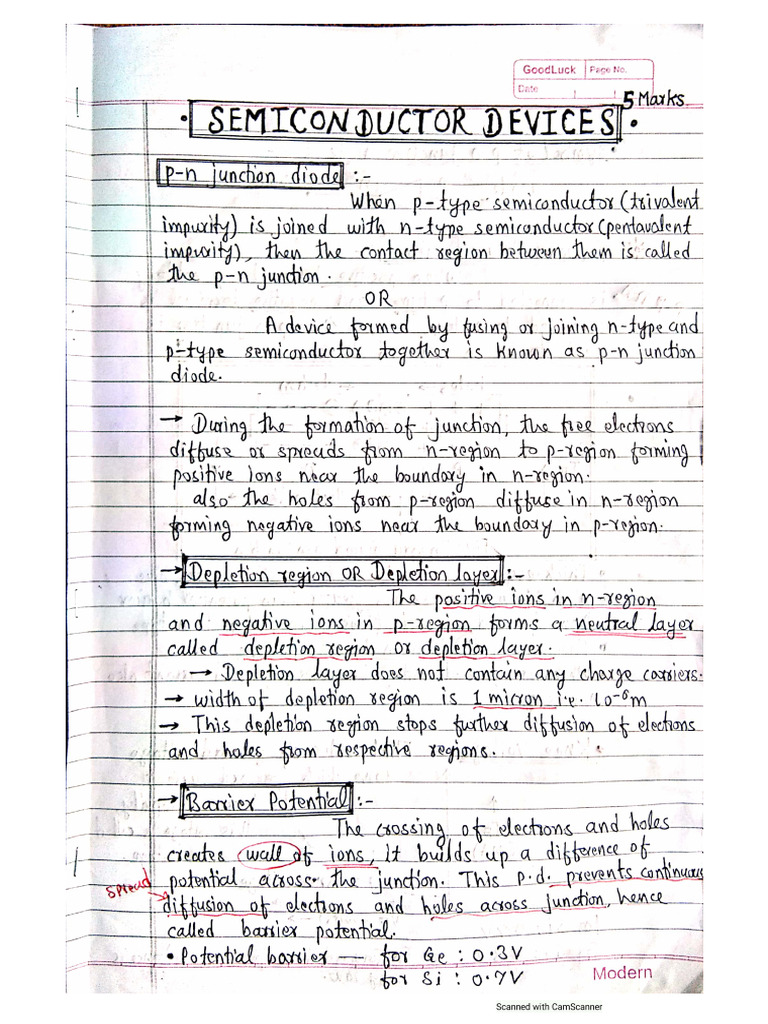 GoodLuck Page No.
Date
5 Marks
• SEMICONDUCTOR DEVICES •
p-n junction diode :-
When p-type semiconductor (trivalent
impurity) is joined with n-type semiconductor (pentavalent
impurity), then the contact region between them is called
the p-n junction.
OR
A device formed by fusing or joining n-type and
p-type semiconductor together is known as p-n junction
diode.
→ During the formation of junction, the free electrons
diffuse or spreads from n-region to p-region forming
positive ions near the boundary in n-region.
also the holes from p-region diffuse in n-region
forming negative ions near the boundary in p-region.
→ Depletion region OR Depletion layer :-
The positive ions in n-region
and negative ions in p-region forms a neutral layer
called depletion region or depletion layer.
→ Depletion layer does not contain any charge carriers.
→ width of depletion region is 1 micron i.e. 10⁻⁶m
→ This depletion region stops further diffusion of electrons
and holes from respective regions.
→ Barrier Potential :-
The crossing of electrons and holes
creates wall of ions, it builds up a difference of
potential across the junction. This p.d. prevents continuous
spread
diffusion of electrons and holes across junction, hence
called barrier potential.
• Potential barrier — for Ge : 0.3V
for Si : 0.7V
Modern
Scanned with CamScanner